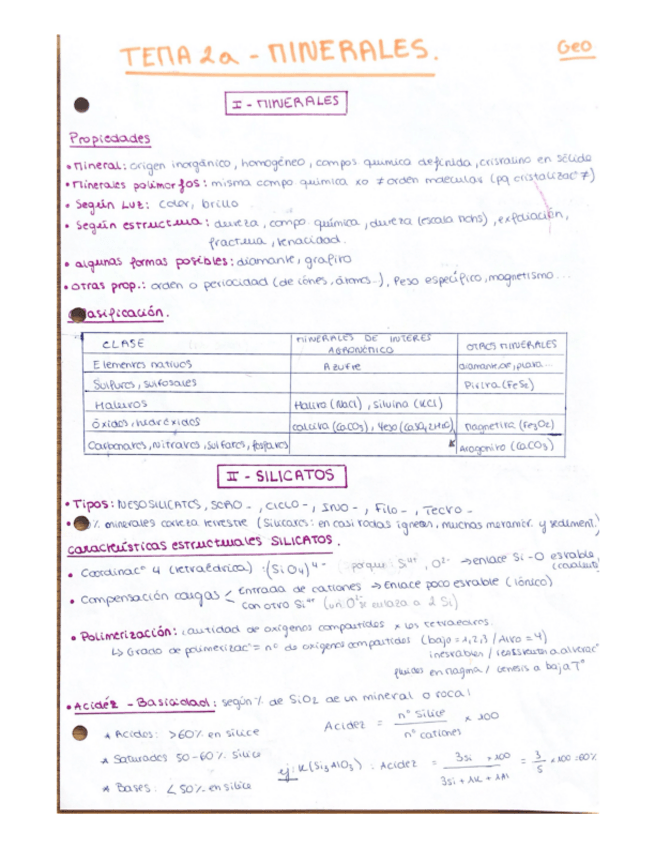 TEMA 2a - MINERALES.
Geo
I - MINERALES
Propiedades
• Mineral: origen inorgánico, homogéneo, compos quimica definida, cristalino en sólido
• Minerales polimorfos: misma compo quimica xo ≠ orden molecular (pq cristalizacº ≠)
• Según Luz: color, brillo
• Según estructura: dureza, compo. química, dureza (escala mohs), exfoliación,
fractura, tenacidad.
• algunas formas posibles: diamante, grafito
• otras prop.: orden o periocidad (de iónes, átomos..), Peso específico, magnetismo...
Clasificación.
CLASE
MINERALES DE INTERÉS AGRONÓMICO
OTROS MINERALES
Elementos nativos
Azufre
diamante, or, plata...
Sulfuros, sulfosales
Pirita (FeS2)
Haluros
Halita (NaCl), silvina (KCl)
óxidos, hidróxidos
calcita (CaCO3), Yeso (CaSO4 2H2O)
magnetita (Fe3O2)
Carbonatos, nitratos, sulfatos, fosfatos
Aragonito (CaCO3)
II - SILICATOS
• Tipos: NESOSILICATOS, SORO -, CICLO -, INO -, Filo -, Tecto -
% minerales corteza terrestre (Silicatos: en casi todas igneas, muchas metamór. y sediment.)
características estructurales SILICATOS.
• Coordinacº 4 (tetraédrica): (SiO4)4- (porque: Si4+, O2- → enlace Si-O estable (covalente)
• Compensación cargas < Entrada de cationes → Enlace poco estable (iónico)
con otro Si4+ (un O2- se enlaza a 2 Si)
• Polimerización: cantidad de oxígenos compartidos x los tetraedros.
↳ Grado de polimerizacº = nº de oxigenos compartidos (bajo = 1,2,3 / Alto = 4)
inestables / resistentes a alteracº
fluidos en magma / génesis a baja Tº
• Acidéz - Basicidad: según % de SiO2 de un mineral o roca:
* Acidos: >60% en silice
Acidez = nº silice / nº cationes x 100
* Saturados 50-60% silice
ej: K(Si3AlO3). Acidez = 3Si x100 / 3Si + 1K + 1Al = 3/5 x100 = 60%
* Bases: <50% en silice